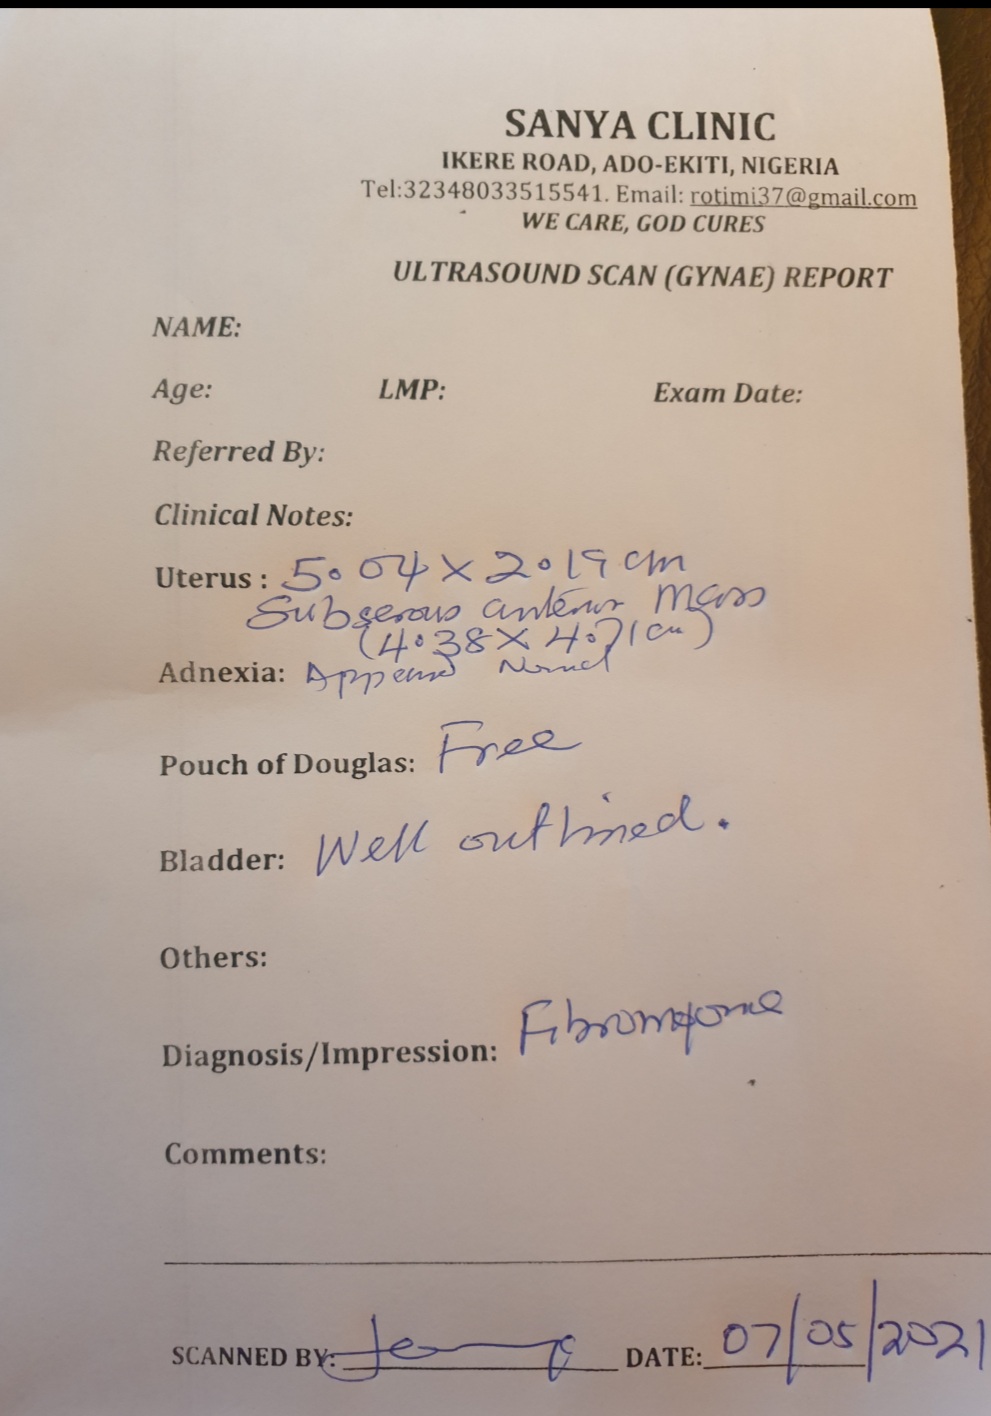 SANYA CLINIC
IKERE ROAD, ADO-EKITI, NIGERIA
Tel:32348033515541. Email: rotimi37@gmail.com
WE CARE, GOD CURES
ULTRASOUND SCAN (GYNAE) REPORT
NAME:
Age: LMP: Exam Date:
Referred By:
Clinical Notes:
Uterus : 5.04 X 2.19 cm
Subserous anterior Mass
(4.38 X 4.71 cm)
Adnexia: Normal
Pouch of Douglas: Free
Bladder: Well outlined.
Others:
Diagnosis/Impression:
Comments:
SCANNED BY: DATE: 07/05/2021